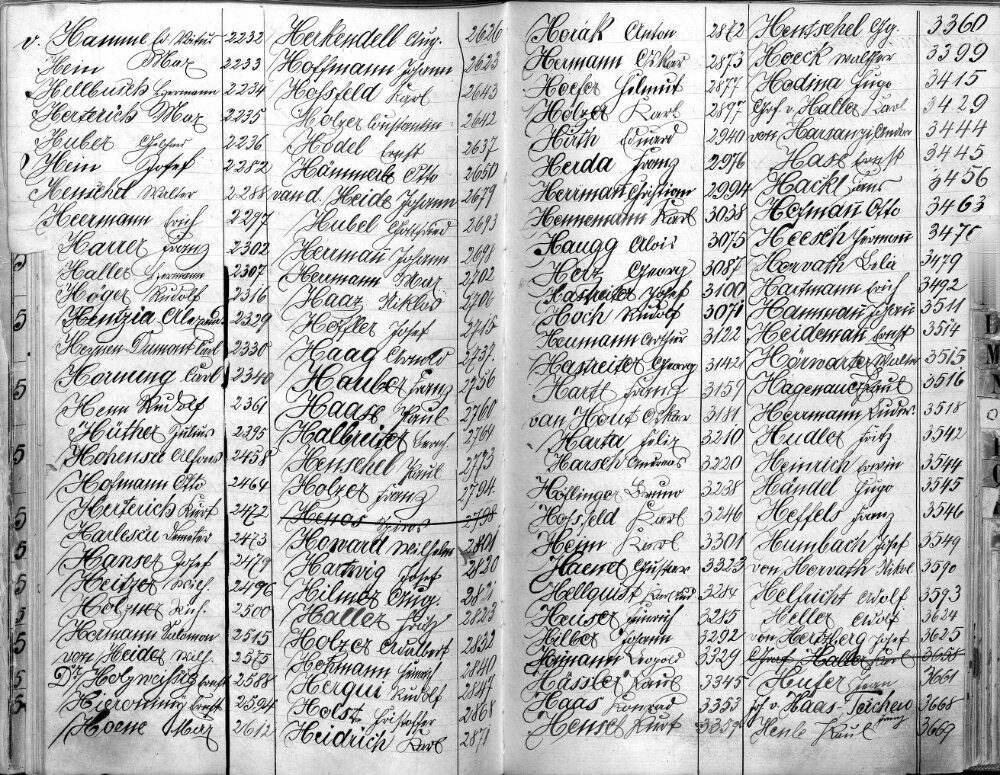 v. Hammel 2232
Hein Max 2233
Hellbusch Hermann 2234
Herterich Max 2235
Huber 2236
Hein Josef 2282
Menschel Walter 2288
Heermann Erich 2297
Harrer Franz 2302
Haller Hermann 2307
Höger Rudolf 2316
2329
Heynen Dumont Karl 2330
Hornung Carl 2340
Henn Rudolf 2361
Hüther Julius 2395
Hohensee Alfons 2458
Hofmann Otto 2464
Heiterich Kurt 2472
Harlescu Demeter 2473
Hanser Josef 2479
Heitzer Wilh. 2496
Holzner Rich. 2500
Hermann Salomon 2515
von Heider Wilh. 2575
Dr Holzweißig Ernst 2588
Hieronimus Ernst 2594
Hoene Max 2612
Heckendell Aug. 2626
Hoffmann Johann 2623
Hossfeld Karl 2643
Holzer Constantin 2642
Hödel Ernst 2637
Hämmerle Otto 2650
van d. Heide Johann 2679
Hubel Gottfried 2693
Heuman Johann 2698
Heumann Max 2702
Haaz Niklas 2706
Höfler Josef 2715
Haag Arnold 2737
Hauber Franz 2756
Haase Paul 2760
Halbreiter 2764
Henschel Paul 2773
Holzer Franz 2794
2798
Howard Wilhelm 2801
Hartwig Josef 2820
Hilmer Aug. 2822
Haller Fritz 2823
Holzer Adalbert 2832
Hofmann Heinrich 2840
Hergui Rudolf 2847
Holst Christoffer 2868
Heidrich Karl 2871
Horák Anton 2872
Hermann Oskar 2873
Hoefer Helmut 2877
Hölzer Karl 2897
Huth Eduard 2940
Herda Franz 2976
Herrman Christian 2994
Hennemann Karl 3038
Haugg Alois 3075
Holz Georg 3087
Hasreiter Josef 3100
Hoch Rudolf 3071
Heumann Arthur 3122
Hasreiter Georg 3142
Harth Franz 3159
van Hout Oskar 3181
Harta Felix 3210
Harsch Andreas 3220
Hollinger Bruno 3238
Hossfeld Karl 3246
Heim Karl 3301
Haend Gustav 3323
Hellquist 3284
Hauser Heinrich 3285
Hilber Johann 3292
Heimann Leopold 3329
Hässler Paul 3345
Haas Konrad 3353
Hensel Kurt 3359
Hentschel Gg. 3360
Hoeck Walther 3399
Hodina Hugo 3415
Graf v. Haller Karl 3429
von Harsanyi Andor 3444
Hase Ernst 3445
Hackl Hans 3456
Hofmañ Otto 3463
Heesch Hermañ 3470
Horvath Bela 3479
Hartmann Erich 3492
Hammañ Johann 3511
Heidemañ Ernst 3514
Hörwarter Walter 3515
Hagenauer Paul 3516
Herrmann 3518
Hudler Fritz 3542
Heinrich Erwin 3544
Händel Hugo 3545
Heffels Franz 3546
Humbach Josef 3549
von Horvath Nikol 3590
Helfricht Adolf 3593
Heller Adolf 3624
von Herzberg Josef 3625
Graf Haller Karl 3658
Heufer 3661
v. Haas-Teichen 3668
Henle Paul 3669